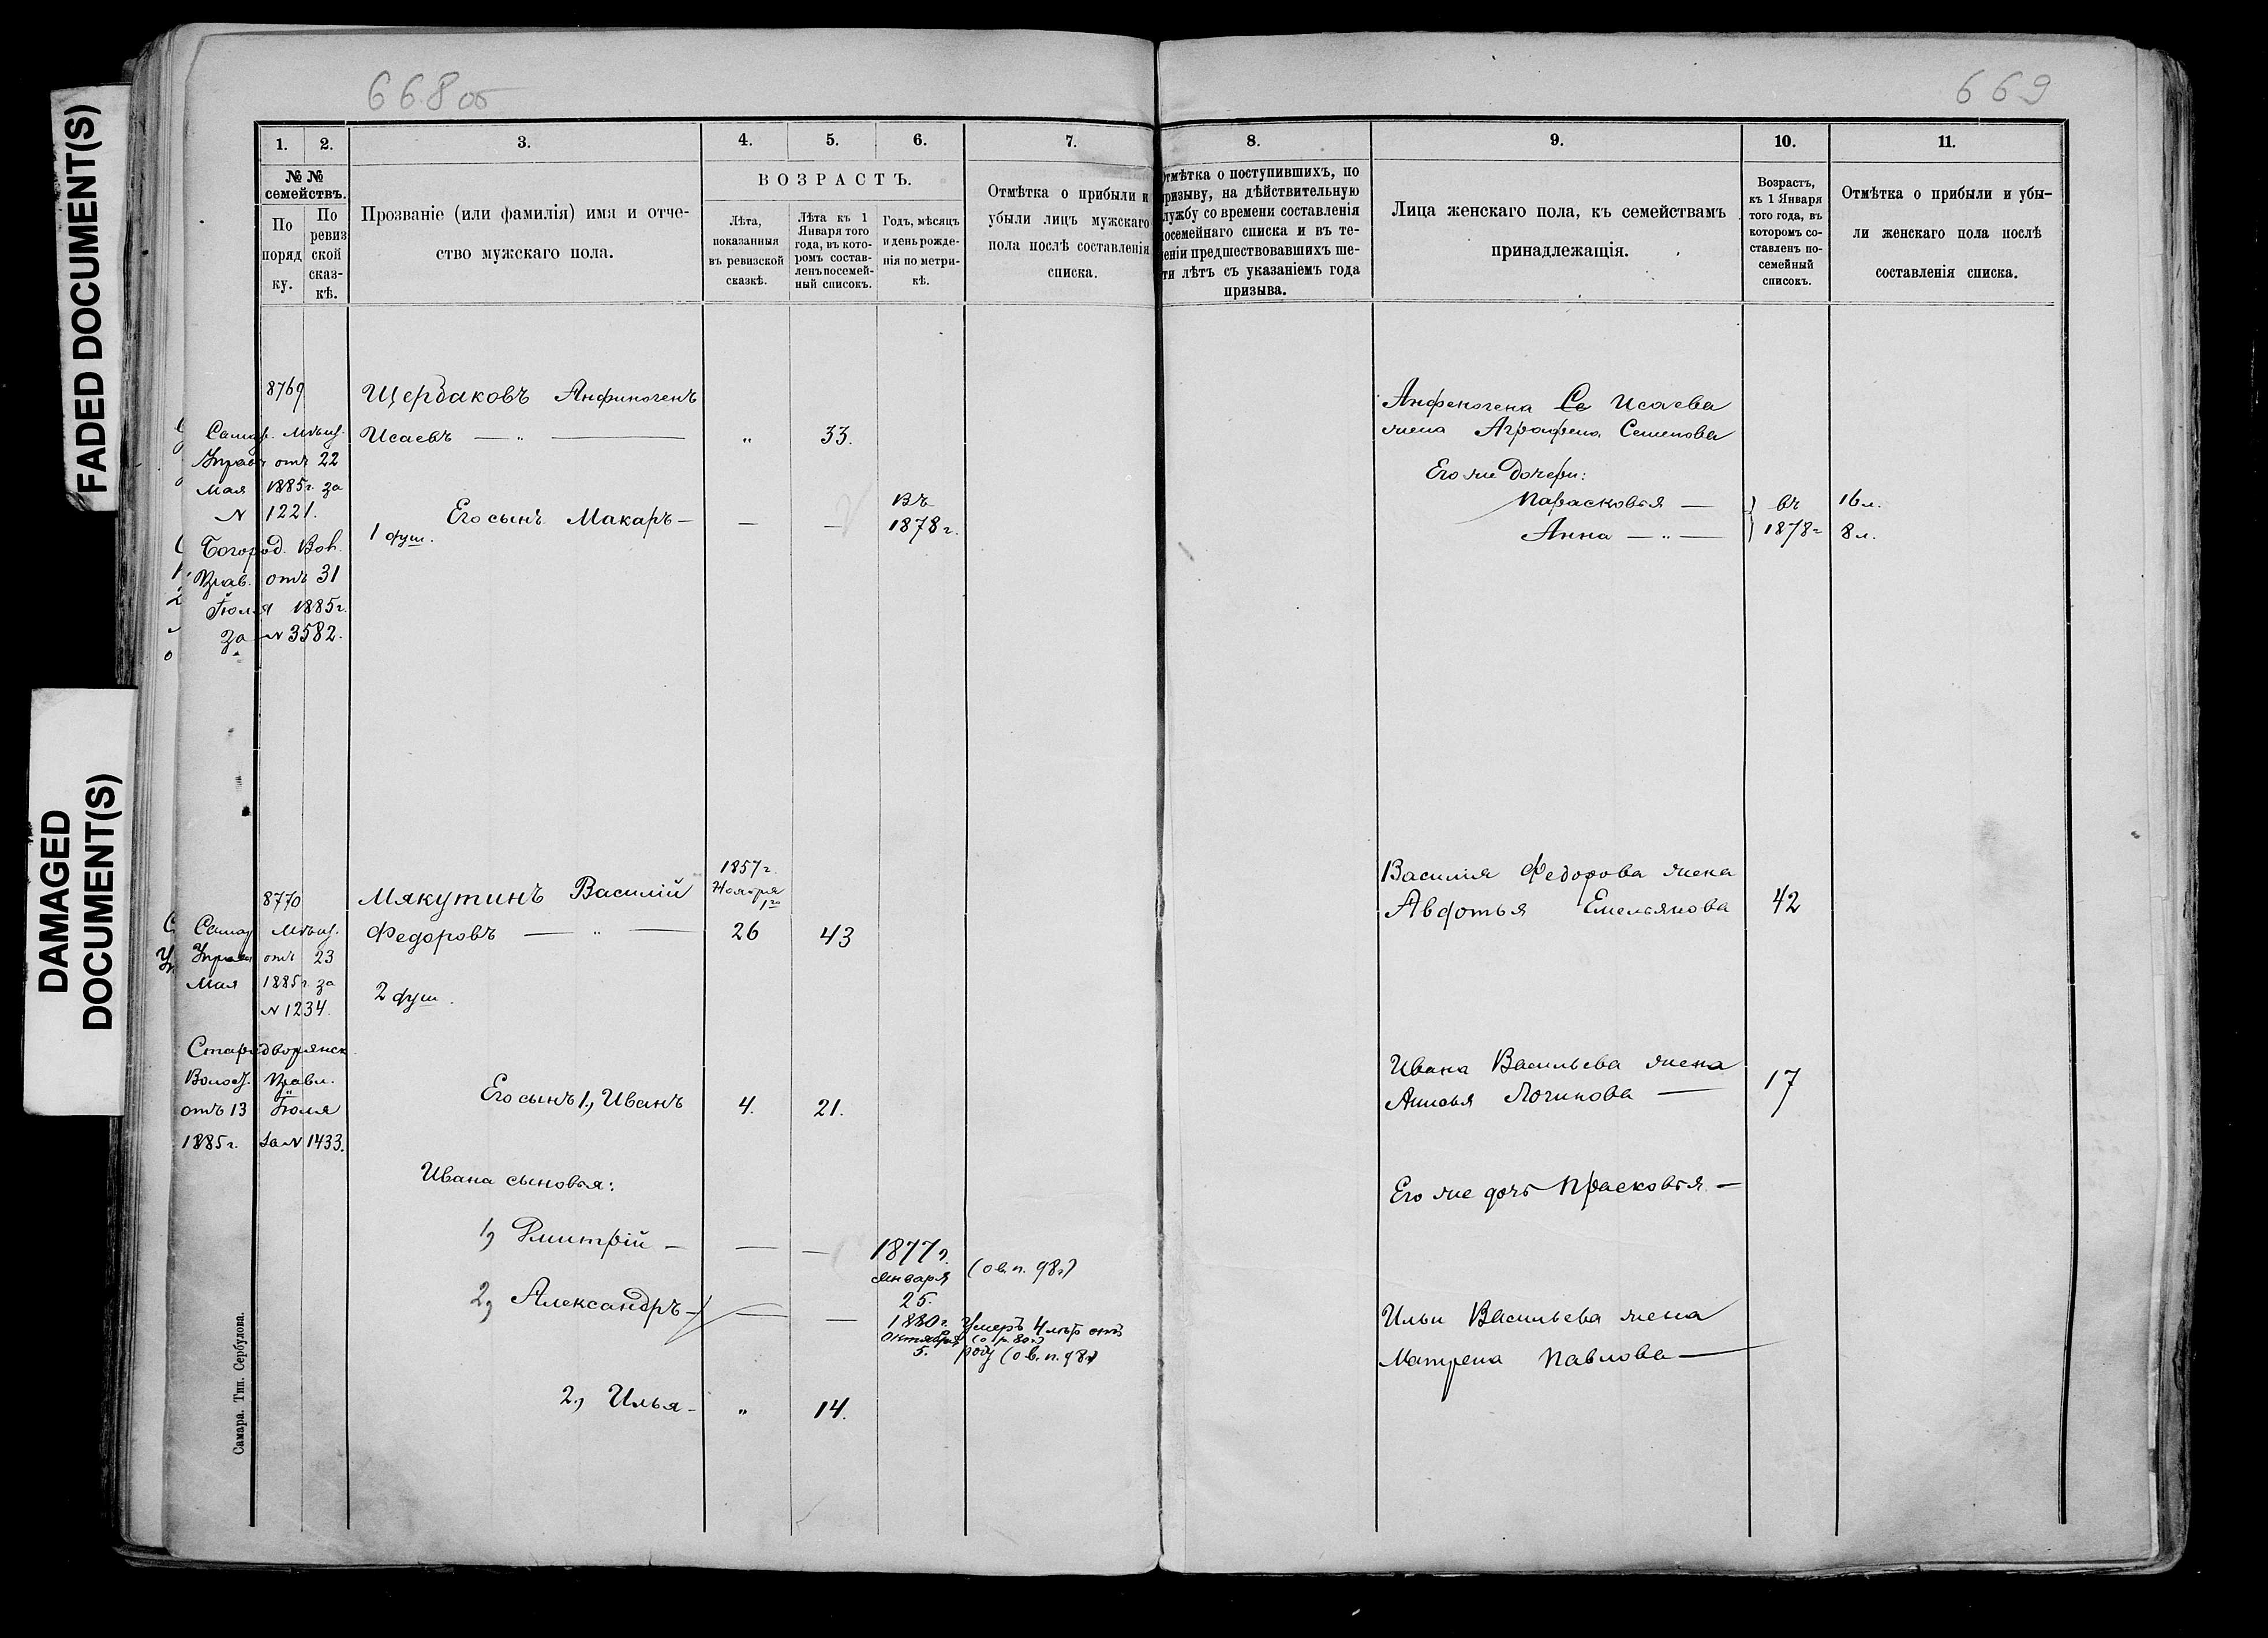 FADED DOCUMENT(S)
DAMAGED
DOCUMENT(S)
668 об
1.
2.
3.
4.
5.
6.
7.
№ №
семействъ.
По
поряд
ку.
По
ревиз
ской
сказ-
кѣ.
Прозваніе (или фамилія) имя и отче-
ство мужскаго пола.
ВОЗРАСТЪ.
Лѣта,
показанныя
въ ревизской
сказкѣ.
Лѣта къ 1
Января того
года, въ кото-
ромъ состав-
ленъ посемей-
ный списокъ.
Годъ, мѣсяцъ
и день рожде-
нія по метри-
кѣ.
Отмѣтка о прибыли и
убыли лицъ мужскаго
пола послѣ составленія
списка.
8769
Щербаковъ Анфиногенъ
Исаевъ — „ — „ 33.
Самар. Мѣщ.
Управы отъ 22
Мая 1885 г. за
№ 1221.
Богород. Вол.
Прав. отъ 31
Іюля 1885 г.
за № 3582.
Его сынъ Макаръ — — —
Въ
1878 г.
1 душ.
8770
Мякутинъ Василій
1857 г.
Ноября
1го
Федоровъ — „ — 26 43
Самар Мѣщ.
Управы отъ 23
Мая 1885 г. за
№ 1234.
2 душ.
Стародворянск.
Волост. Правл.
отъ 13 Іюля
1885 г. за № 1433.
Его сынъ 1., Иванъ 4. 21.
Ивана сыновья:
1, Дмитрій — — —
1877 г.
Января
25.
(о в. п. 98 г)
2, Александръ — — —
1880 г.
Октября
5.
Умеръ 4
(о р. 80 г)
году (о в. п. 98 г)
2., Илья — „ 14.
Самара. Тип. Сербулова.
669
8.
9.
10.
11.
Отмѣтка о поступившихъ, по
призыву, на дѣйствительную
службу со времени составленія
посемейнаго списка и въ те-
ченіи предшествовавшихъ ше-
сти лѣтъ съ указаніемъ года
призыва.
Лица женскаго пола, къ семействамъ
принадлежащія.
Возрастъ,
къ 1 Января
того года, въ
которомъ со-
ставленъ по-
семейный
списокъ.
Отмѣтка о прибыли и убы-
ли женскаго пола послѣ
составленія списка.
Анфеногена Се Исаева
жена Аграфена Семенова
Его же дочери:
Парасковья — въ 16 л.
Анна — „ — 1878 г 8 л.
Василія Федорова жена
Авдотья Емельянова 42
Ивана Васильева жена
Анисья Логинова — 17
Его же дочь Прасковья —
Ильи Васильева жена
Матрена Павлова —